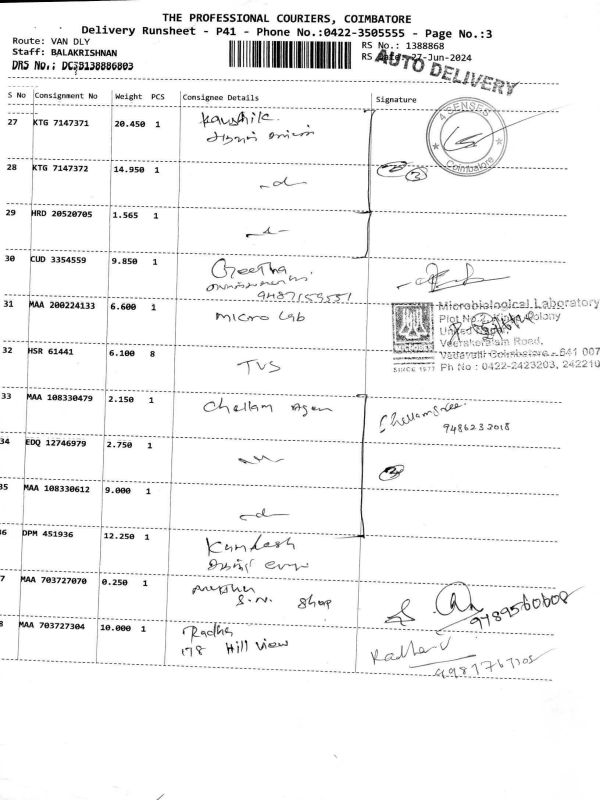 THE PROFESSIONAL COURIERS, COIMBATORE
Delivery Runsheet - P41 - Phone No.:0422-3505555 - Page No.:3
Route: VAN DLY
RS No.: 1388868
Staff: BALAKRISHNAN
RS Date: 27-Jun-2024
DRS No.: DCJB138886803
AUTO DELIVERY
S No Consignment No Weight PCS Consignee Details Signature
27 KTG 7147371 20.450 1 Kaushik
4 SENSES
Coimbatore
28 KTG 7147372 14.950 1 -d-
3
29 HRD 20520705 1.565 1 -d-
30 CUD 3354559 9.850 1 Geetha
31 MAA 200224133 6.600 1 micro Lab
Microbiological Laboratory
Plot No. Colony
United
Veerakeralam Road,
Vadavalli Coimbatore - 641 007
SINCE 1977 Ph No : 0422-2423203, 242210
32 HSR 61441 6.100 8 TVS
33 MAA 108330479 2.150 1 Chellam Agen
Chellamsree
9486232018
34 EDQ 12746979 2.750 1
35 MAA 108330612 9.000 1 -d-
36 DPM 451936 12.250 1
7 MAA 703727070 0.250 1
S.N. Shop
9489560608
8 MAA 703727304 10.000 1 Radha
178 Hill View
Radha